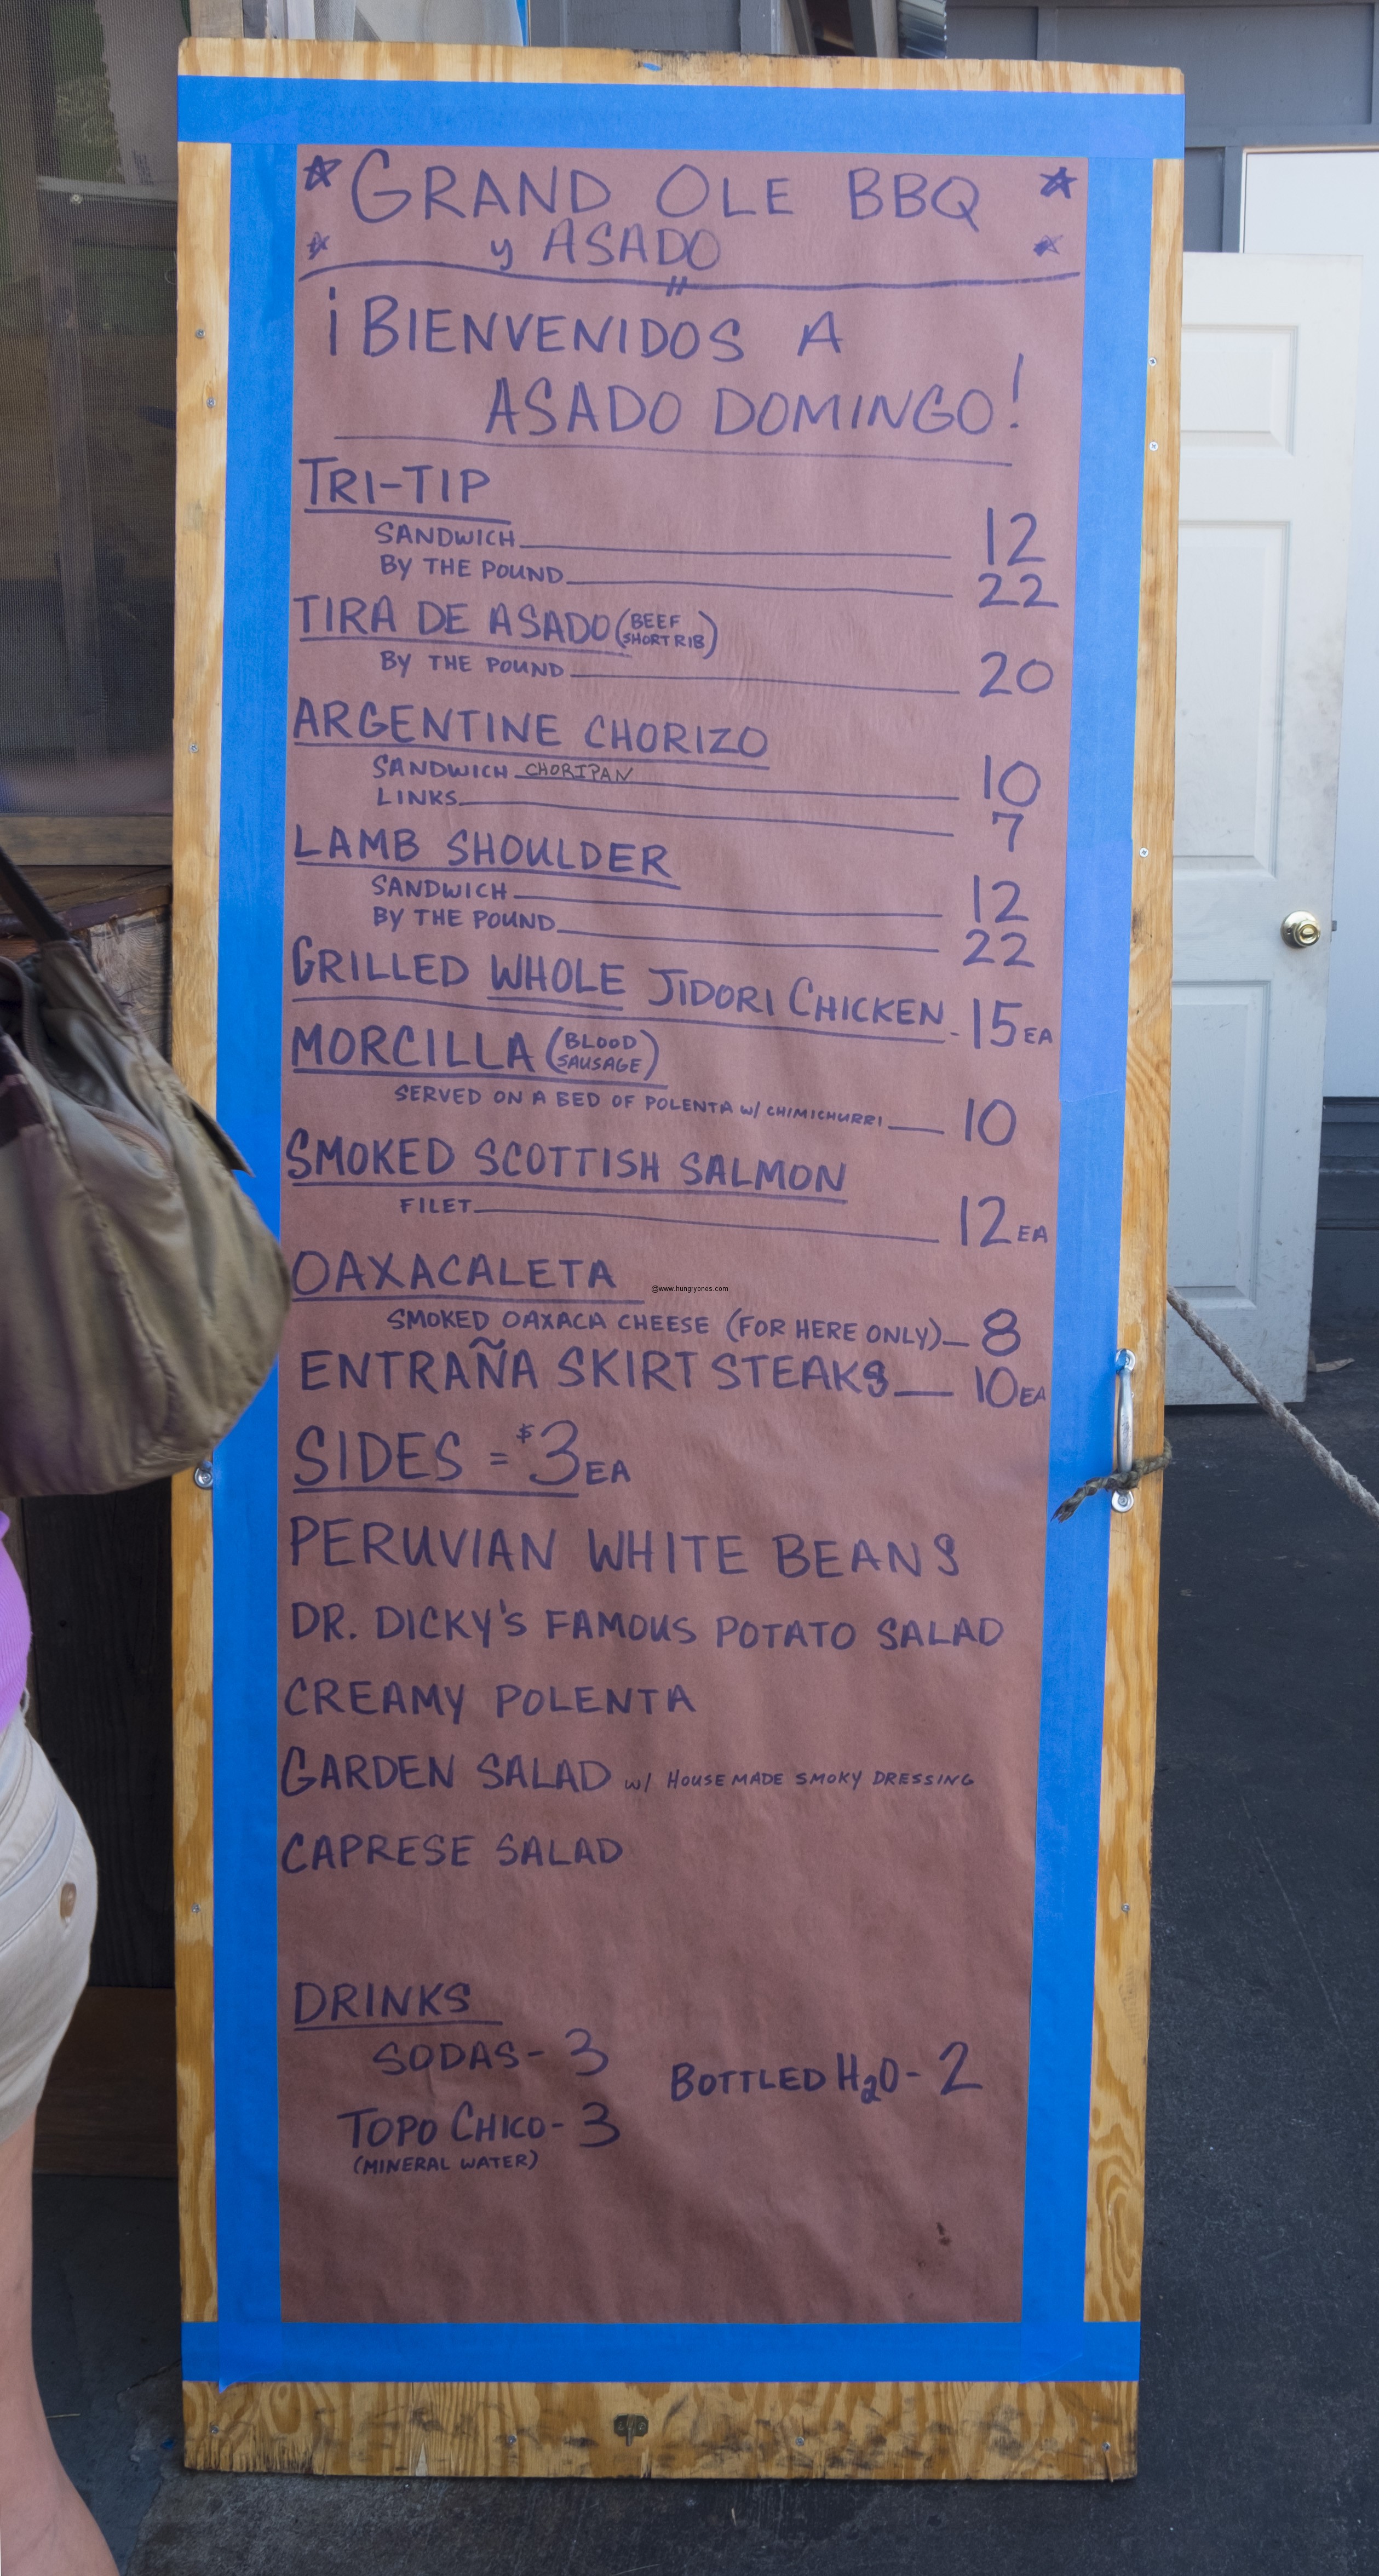 GRAND OLE BBQ
y ASADO
¡BIENVENIDOS A
ASADO DOMINGO!
TRI-TIP
SANDWICH 12
BY THE POUND 22
TIRA DE ASADO (BEEF SHORT RIB)
BY THE POUND 20
ARGENTINE CHORIZO
SANDWICH CHORIPAN 10
LINKS 7
LAMB SHOULDER
SANDWICH 12
BY THE POUND 22
GRILLED WHOLE JIDORI CHICKEN - 15 EA
MORCILLA (BLOOD SAUSAGE)
SERVED ON A BED OF POLENTA w/ CHIMICHURRI 10
SMOKED SCOTTISH SALMON
FILET 12 EA
OAXACALETA
@www.hungryones.com
SMOKED OAXACA CHEESE (FOR HERE ONLY) 8
ENTRAÑA SKIRT STEAKS 10 EA
SIDES = $3 EA
PERUVIAN WHITE BEANS
DR. DICKY'S FAMOUS POTATO SALAD
CREAMY POLENTA
GARDEN SALAD w/ HOUSEMADE SMOKY DRESSING
CAPRESE SALAD
DRINKS
SODAS - 3
BOTTLED H2O - 2
TOPO CHICO - 3
(MINERAL WATER)